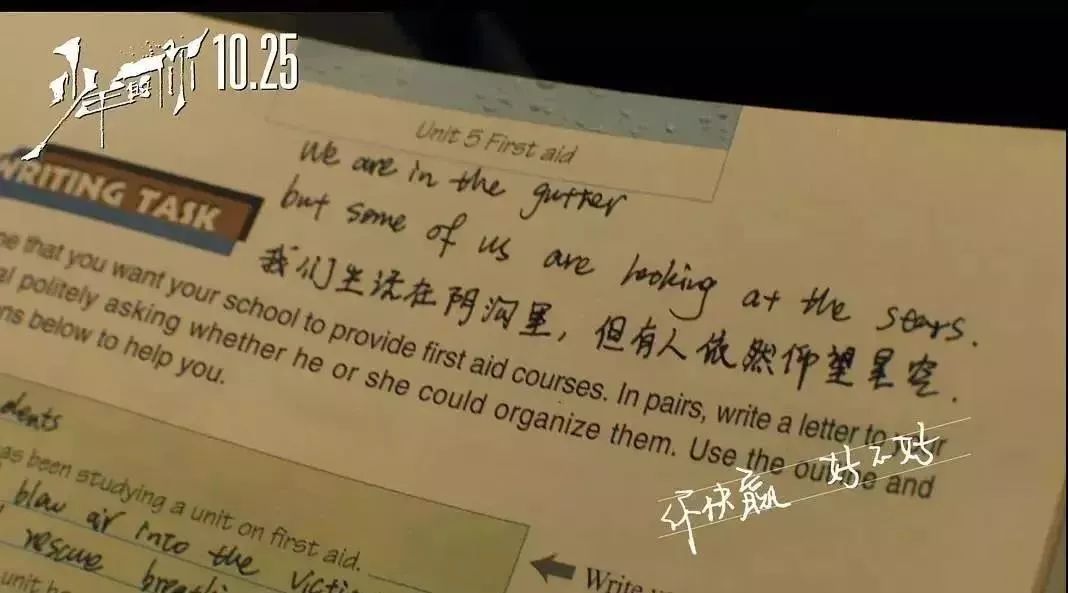 少年的你 10.25
Unit 5 First aid
We are in the gutter
WRITING TASK
but some of us are looking at the stars.
我们生活在阴沟里，但有人依然仰望星空.
that you want your school to provide first aid courses. In pairs, write a letter to your
politely asking whether he or she could organize them. Use the outline and
below to help you.
你快赢 好不好
been studying a unit on first aid.
blow air into the
rescue
Write
unit